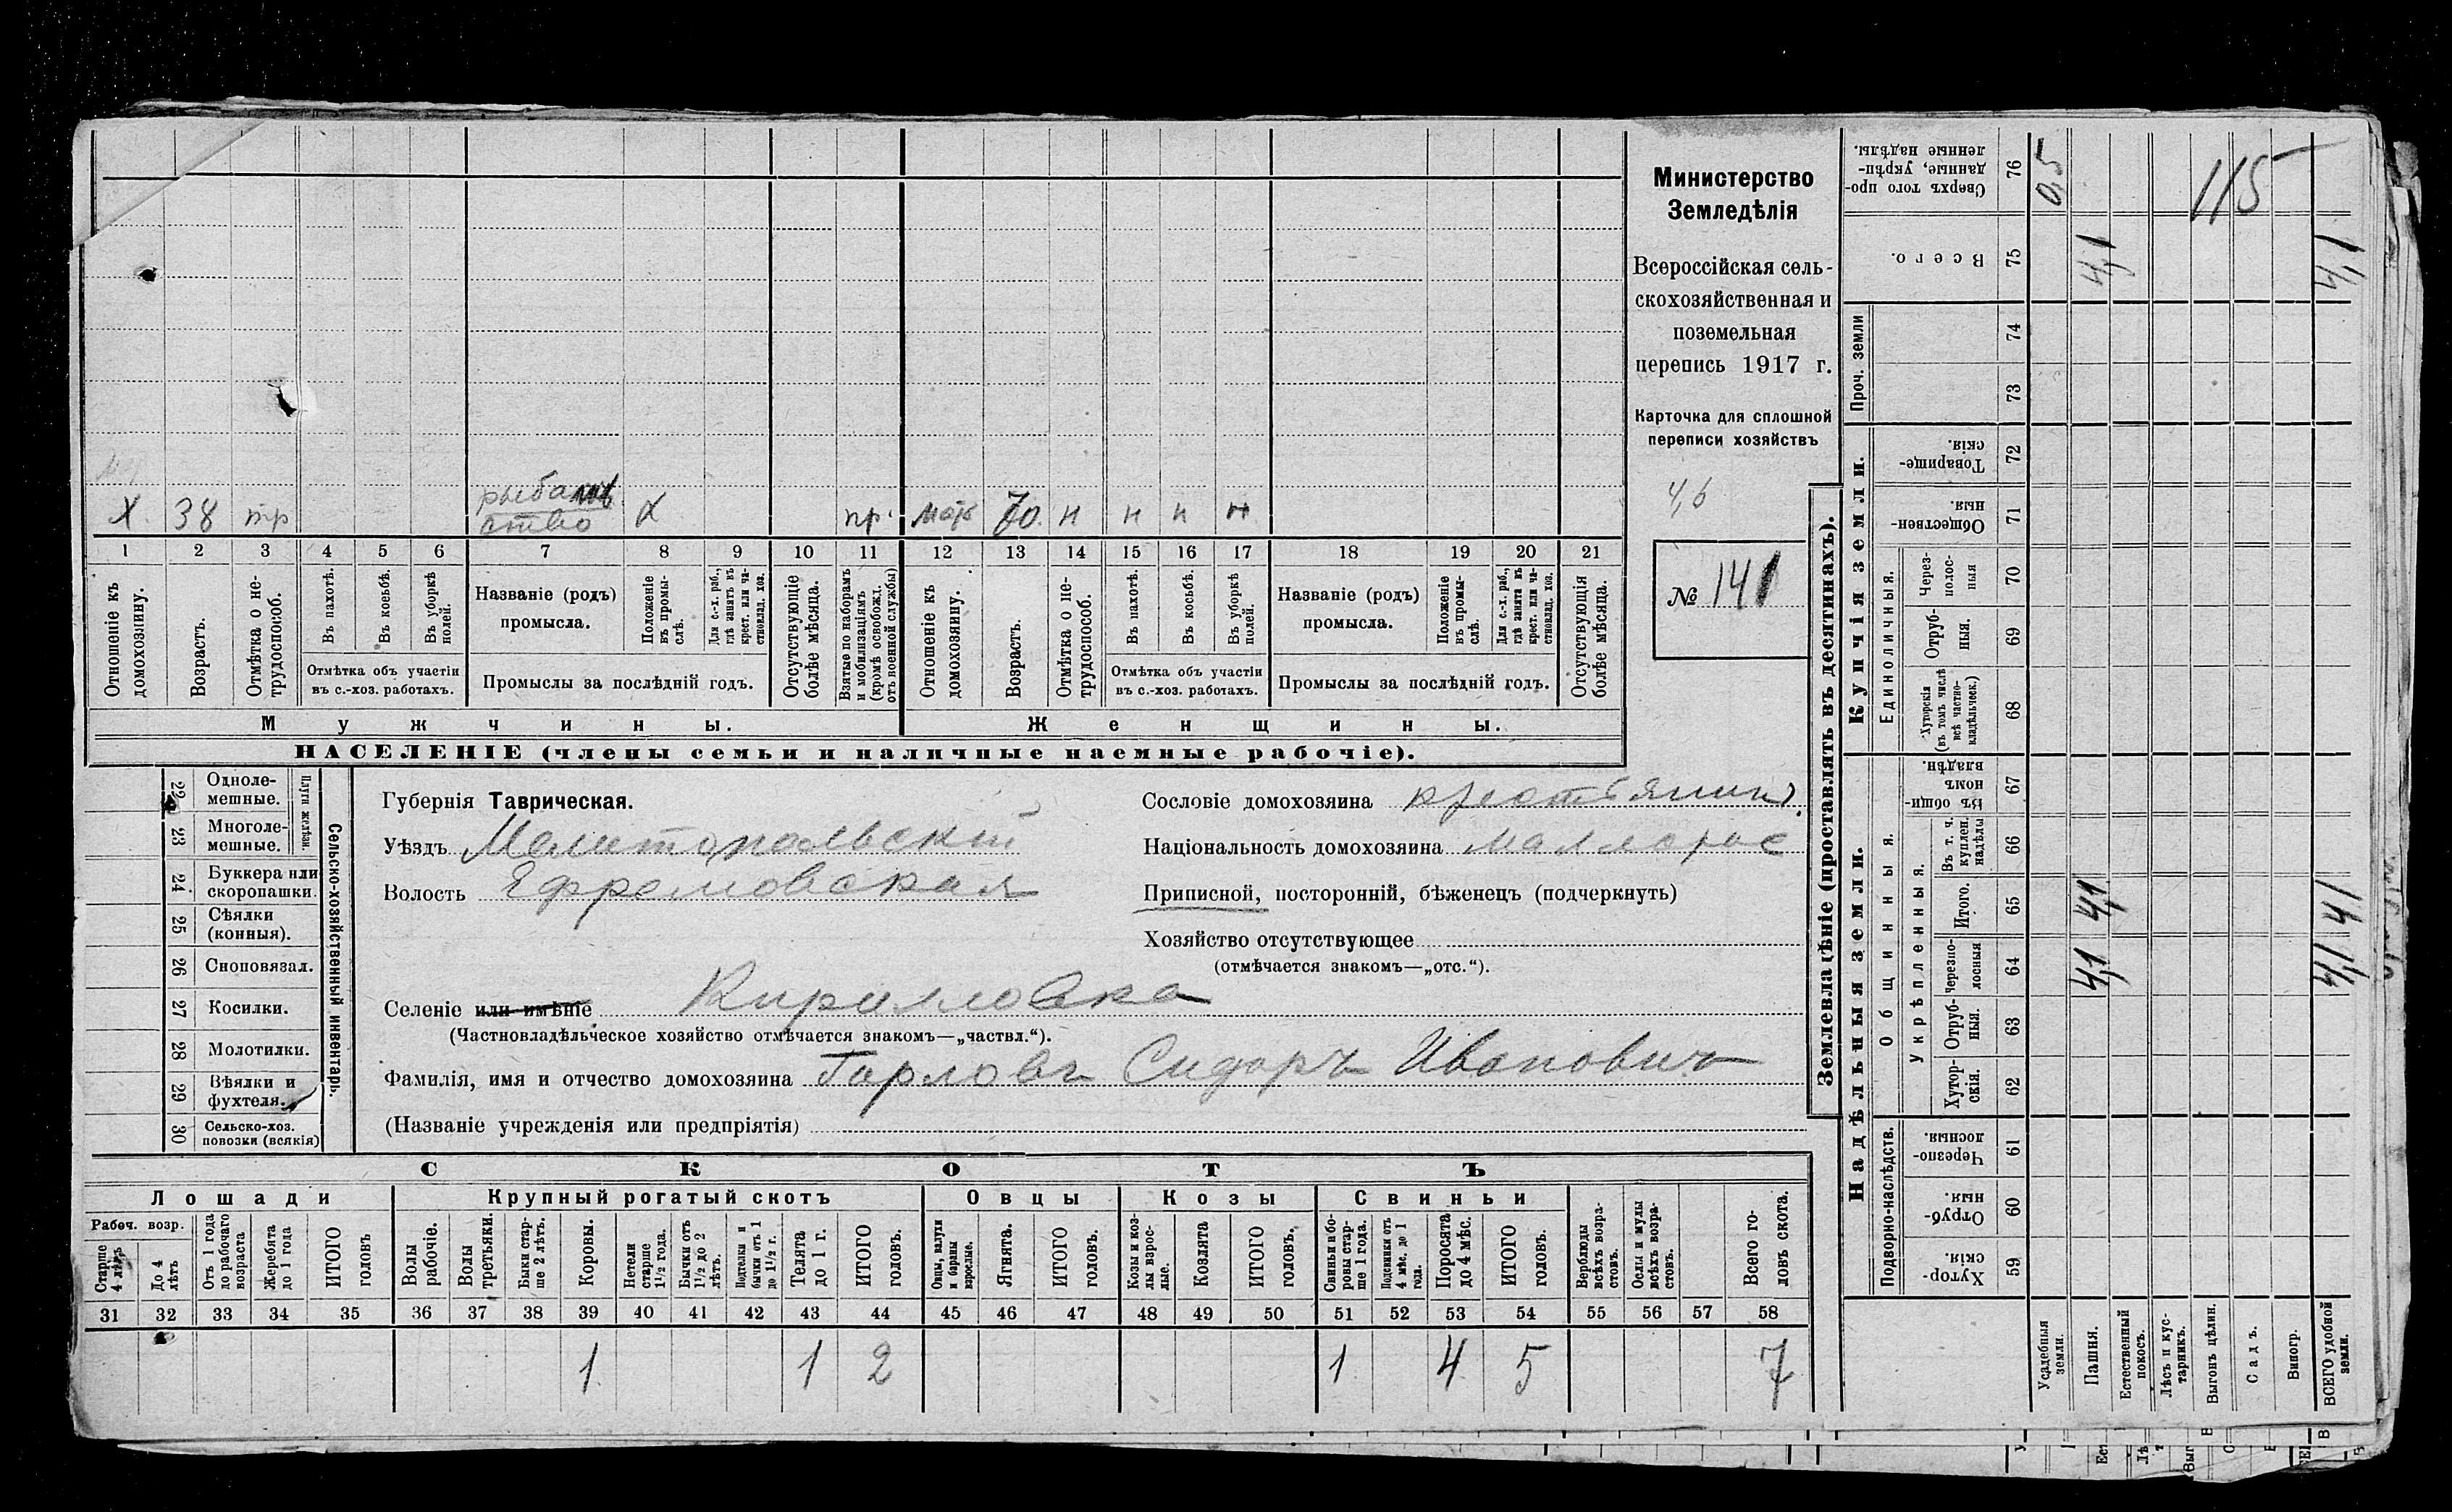 Министерство
Земледѣлія
Всероссійская сель-
скохозяйственная и
поземельная
перепись 1917 г.
Карточка для сплошной
переписи хозяйствъ
4,6
№ 141
Х. 38 тр рыбал Х пр. мат 70. н н н н
ство
1 2 3 4 5 6 7 8 9 10 11 12 13 14 15 16 17 18 19 20 21
Отношеніе къ домохозяину.
Возрастъ.
Отмѣтка о не-трудоспособ.
Въ пахотѣ.
Въ косьбѣ.
Въ уборкѣ полей.
Отмѣтка объ участіи
въ с.-хоз. работахъ.
Названіе (родъ)
промысла.
Положеніе въ промы-слѣ.
Для с.-х. раб., гдѣ занятъ въ крест. или ча-стновлад. хоз.
Промыслы за послѣдній годъ.
Отсутствующіе болѣе мѣсяца.
Взятые по наборамъ и мобилизаціямъ (кромѣ освобожд. отъ военной службы)
Отношеніе къ домохозяину.
Возрастъ.
Отмѣтка о не-трудоспособ.
Въ пахотѣ.
Въ косьбѣ.
Въ уборкѣ полей.
Отмѣтка объ участіи
въ с.-хоз. работахъ.
Названіе (родъ)
промысла.
Положеніе въ промы-слѣ.
Для с.-х. раб., гдѣ занята въ крест. или ча-стновлад. хоз.
Промыслы за послѣдній годъ.
Отсутствующія болѣе мѣсяца.
Мужчины.
Женщины.
НАСЕЛЕНІЕ (члены семьи и наличные наемные рабочіе).
Сельско-хозяйственный инвентарь.
Плуги желѣзн.
22 Одноле-мешные.
23 Многоле-мешные.
24 Буккера или скоропашки.
25 Сѣялки (конныя).
26 Сноповязал.
27 Косилки.
28 Молотилки.
29 Вѣялки и фухтеля.
30 Сельско-хоз. повозки (всякія)
Губернія Таврическая.
Уѣздъ Мелитопольскій
Волость Ефремовская
Селеніе или имѣніе Кирилловка
(Частновладѣльческое хозяйство отмѣчается знакомъ—„частвл.“).
Фамилія, имя и отчество домохозяина Горловъ Сидоръ Ивановичъ
(Названіе учрежденія или предпріятія)
Сословіе домохозяина крестьянинъ
Національность домохозяина маллорос
Приписной, посторонній, бѣженецъ (подчеркнуть)
Хозяйство отсутствующее
(отмѣчается знакомъ—„отс.“).
СКОТЪ
Лошади
Крупный рогатый скотъ
Овцы
Козы
Свиньи
Рабоч. возр.
Старше 4 лѣтъ
До 4 лѣтъ
Отъ 1 года до рабочаго возраста
Жеребята до 1 года
ИТОГО головъ
Волы рабочіе.
Волы третьяки.
Быки стар-ше 2 лѣтъ.
Коровы.
Нетели старше 1½ года.
Бычки отъ 1½ до 2 лѣтъ.
Подтелки и бычки отъ 1 до 1½ г.
Телята до 1 г.
ИТОГО головъ.
Овцы, валухи и бараны взрослые.
Ягнята.
ИТОГО головъ.
Козы и коз-лы взрос-лые.
Козлята
ИТОГО головъ.
Свиньи и бо-ровы стар-ше 1 года.
Подсвинки отъ 4 мѣс. до 1 года.
Поросята до 4 мѣс.
ИТОГО головъ.
Верблюды всѣхъ возра-стовъ.
Ослы и мулы всѣхъ возра-стовъ.
Всего го-ловъ скота.
31 32 33 34 35 36 37 38 39 40 41 42 43 44 45 46 47 48 49 50 51 52 53 54 55 56 57 58
1 1 2 1 4 5 7
Землевладѣніе (проставлять въ десятинахъ).
Надѣльныя земли.
Купчія земли.
Проч. земли
Подворно-наслѣдств.
Общинныя.
Укрѣпленныя.
Единоличныя.
Хутор-скія. 59
Отруб-ныя. 60
Черезпо-лосныя. 61
Хутор-скія. 62
Отруб-ныя. 63
Черезпо-лосныя 64
Итого. 65
Въ т. ч. куплен. надѣлы 66
Въ общи-номъ владѣн. 67
Хуторскія (въ томъ числѣ всѣ частно-владѣльческ.) 68
Отруб-ныя. 69
Через-полос-ныя 70
Обществен-ныя. 71
Товарище-скія. 72
73
74
Всего. 75
Сверхъ того про-данные, укрѣп-ленные надѣлы. 76
Усадебныя земли.
Пашня.
Естественный покосъ.
Лѣсъ и кус-тарникъ.
Выгонъ цѣлин.
Садъ.
Виногр.
ВСЕГО удобной земли.
0,5
115
4,1 4,1
4,1 4,1
4,1 4,1